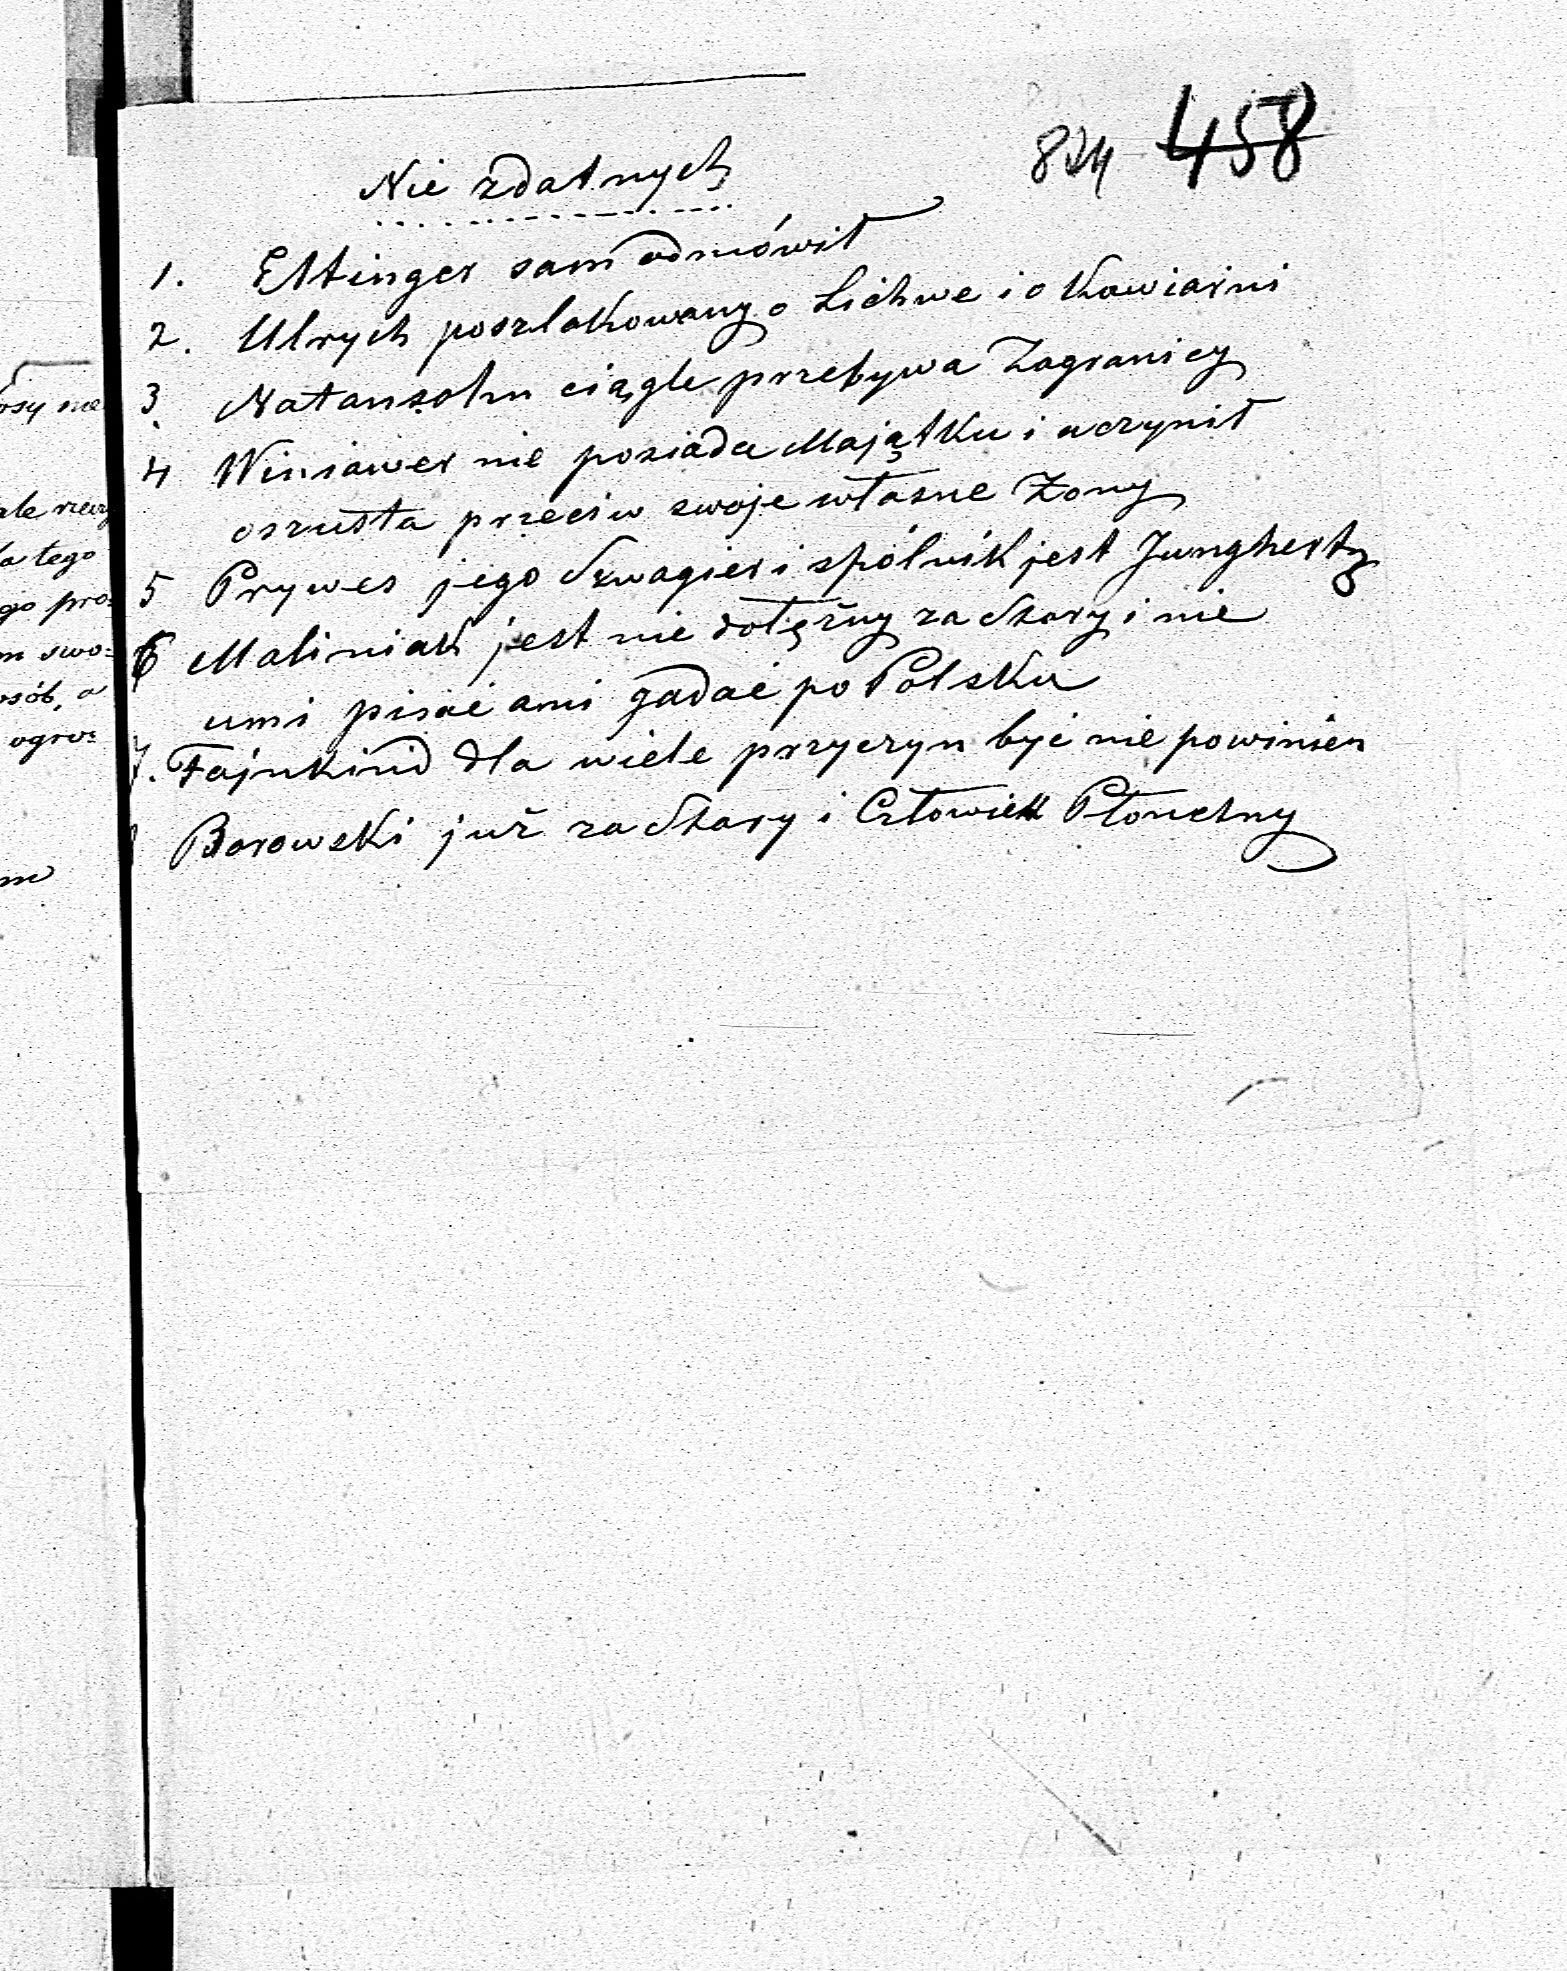 824 458
Nie zdatnych
1. Ettinger sam odmówił
2. Ulrych poszlakowany o Lichwe i o Kawiarni
3. Natansohn ciągle przebywa Zagranicy
4 Winiawer nie posiada Majątku i uczynił
oszusta przeciw swoje własne Zony
5 Prywes jego Szwagier i spólnik jest Junghertz
6 Maliniak jest nie dołęžny za Stary i nie
umi pisać ani gadać po Polsku
7. Fajnkind dla wiele przyczyn być nie powinien
Borowski już za Stary i Człowiek
osy nie
ale
la tego
go pro=
m swo=
osób, a
ogro=